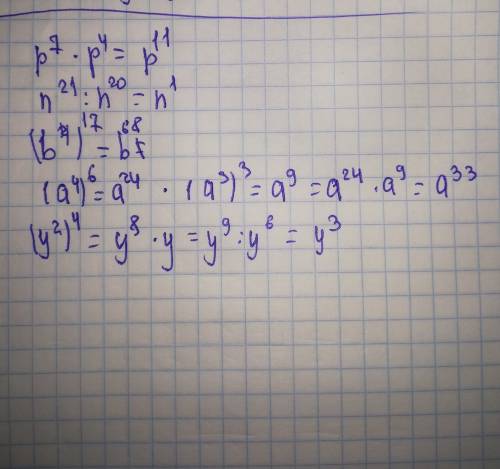 p⁷ · p⁴ = p¹¹
n²¹ : n²⁰ = n¹
(b⁴)¹⁷ = b⁶⁸
(a⁴)⁶ = a²⁴ · (a³)³ = a⁹ = a²⁴ · a⁹ = a³³
(y²)⁴ = y⁸ · y = y⁹ : y⁶ = y³